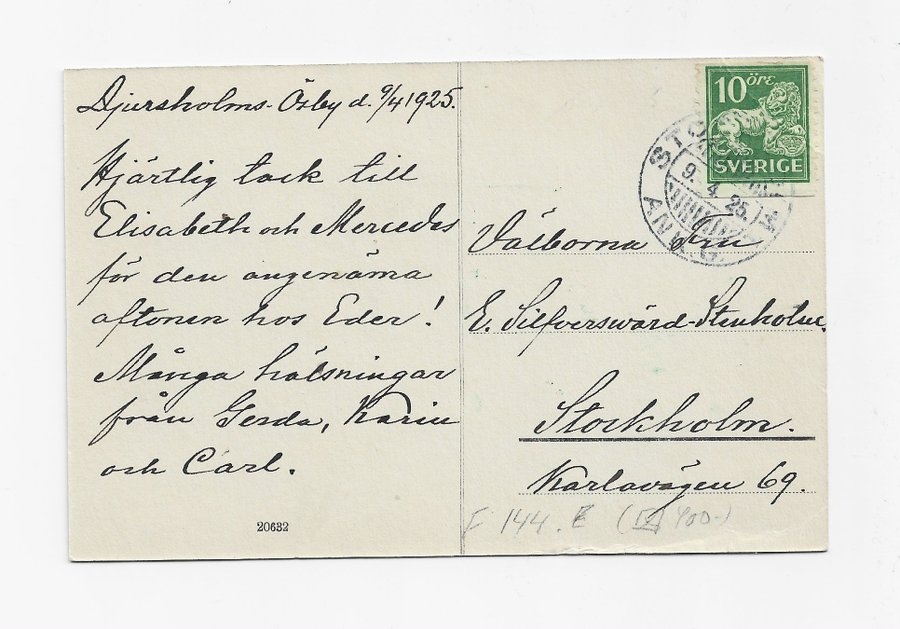 Djursholms-Ösby d. 9/4 1925.
Hjärtlig tack till
Elisabeth och Mercedes
för den angenäma
aftonen hos Eder!
Många hälsningar
från Gerda, Karin
och Carl.
20632
10 öre
SVERIGE
9. 4. 25.
Välborna Fru
E. Silfverswärd-Stenholm.
Stockholm.
Karlavägen 69.
F 144. E (400:-)